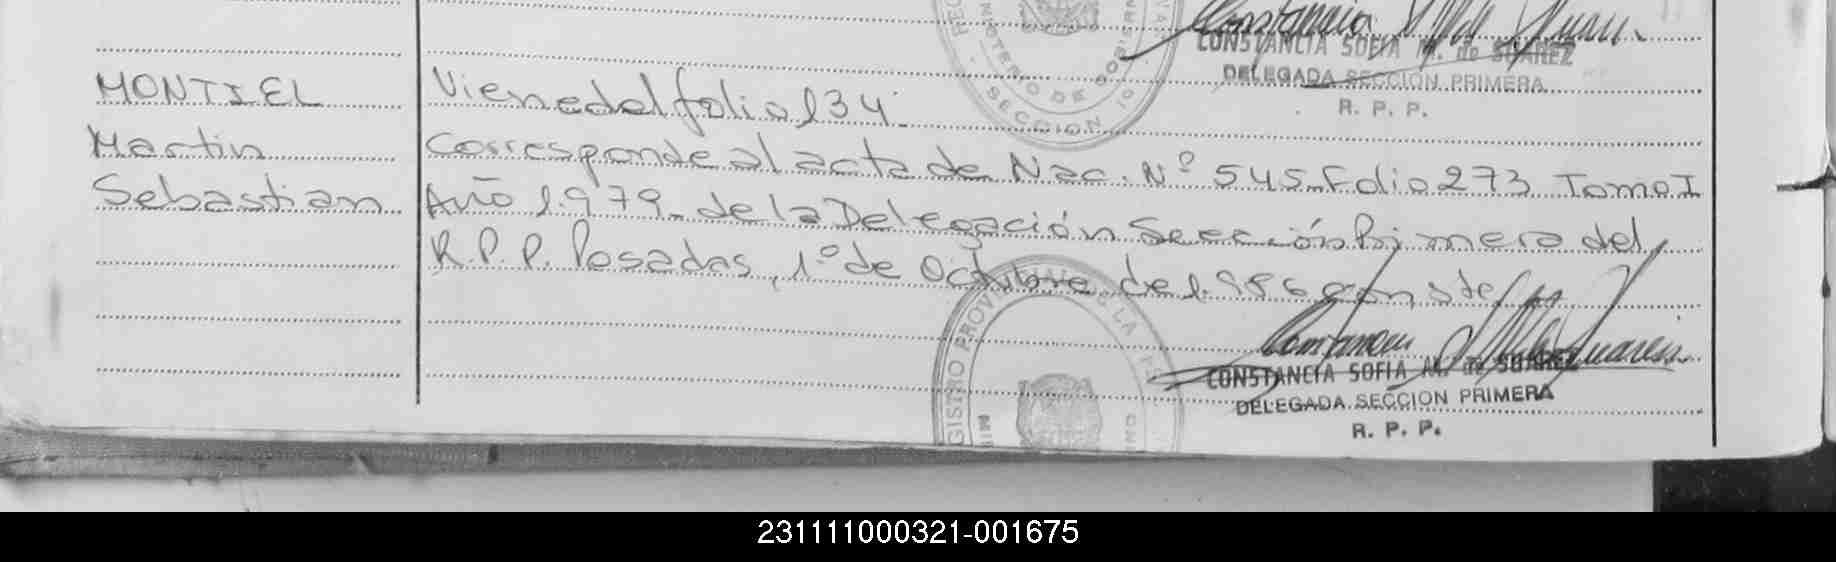 Constancia
CONSTANCIA SOFIA M. de SUAREZ
DELEGADA SECCION PRIMERA
R. P. P.
MONTIEL
Martin
Sebastian
Viene del folio 134.
Corresponde al acta de Nac. Nº 545 Folio 273 Tomo I
Año 1.979. de la Delegación Sección Primera del
R.P.P. Posadas, 1º de Octubre de 1.986 conste
SECCION
REGISTRO PROVINCIAL DE LA
CONSTANCIA SOFIA M. de SUAREZ
DELEGADA SECCION PRIMERA
R. P. P.
231111000321-001675